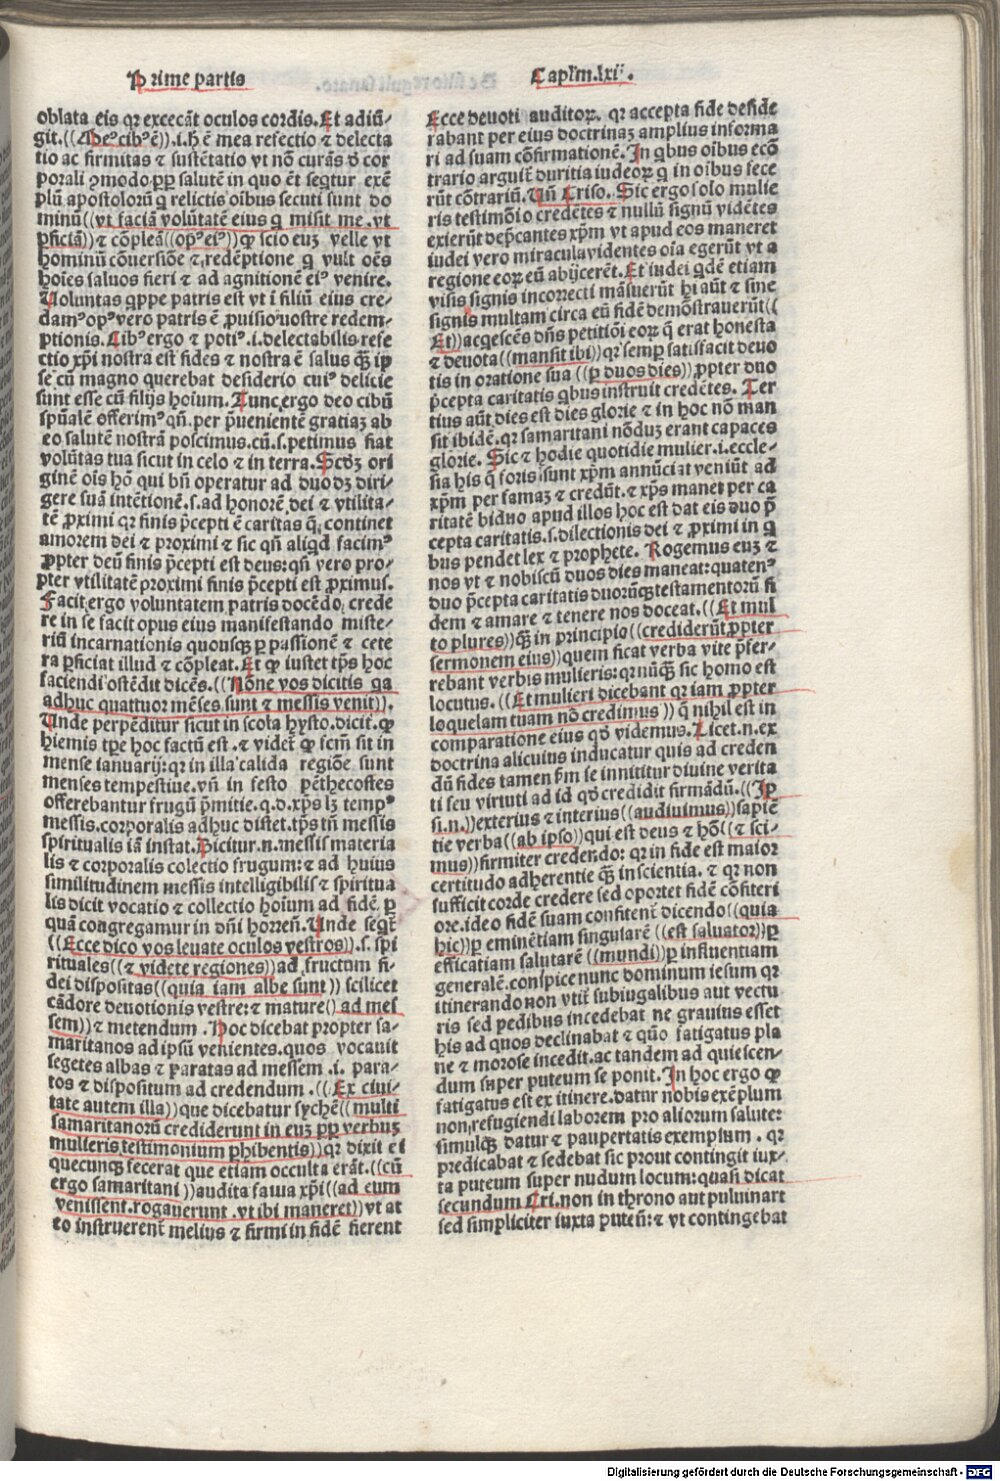 Prime partis
Capl'm.lxij.
oblata eis qr excecãt oculos cordis. Et adiũ-
git. ((Meꝰ cibꝰ ē)) .i. h̄ ē mea refectio ⁊ delecta
tio ac firmitas ⁊ sustētatio vt nō curās ď cor
porali ꝯmodo ꝓp̱ salutē in quo ēt seqtur exē
plū apostolorū q relictis oibus secuti sunt do
minū ((vt faciā volūtatē eius q misit me .vt
ꝑficiā)) ⁊ cōpleā ((opꝰ eiꝰ)) qꝫ scio euꝫ velle vt
hominū cōuersiōe ⁊ redēptione q vult oēs
hoīes saluos fieri ⁊ ad agnitionē eiꝰ venire.
Voluntas q̇ppe patris est vt ī filiū eius cre-
damꝰ opꝰ vero patris ē ꝓuisio nostre redem-
ptionis. Cibꝰ ergo ⁊ potꝰ .i. delectabilis refe
ctio xp̄i nostra est fides ⁊ nostra ē salus q̄ꝫ ip
se cū magno querebat desiderio cuiꝰ delicie
sunt esse cū filijs hoīum. Tunc ergo deo cibū
spūalē offerimꝰ qn̄ .per p̄uenientē gratiaꝫ ab
eo salutē nostrā poscimus. cū .s. petimus fiat
volūtas tua sicut in celo ⁊ in terra. Scd'ꝫ ori
ginē ois hō qui bn̄ operatur ad duo dꝫ diri-
gere suā intētionē .s. ad honorē dei ⁊ vtilita-
tē ꝓximi qr finis p̄cepti ē caritas q̄ continet
amorem dei ⁊ proximi ⁊ sic qn̄ aliqd facimꝰ
ꝓpter deū finis p̄cepti est deus: qn̄ vero pro-
pter vtilitatē proximi finis p̄cepti est ꝓximus.
Facit ergo voluntatem patris docēdo crede
re in se facit opus eius manifestando miste-
riū incarnationis quousqꝫ ꝑ passionē ⁊ cete
ra ꝑficiat illud ⁊ cōpleat. Et qꝫ iustet tp̄s hoc
faciendi ostēdit dicēs. ((Nōne vos dicitis qa
adhuc quattuor mēses sunt ⁊ messis venit)).
Unde perpēditur sicut in scola hysto. dicit. qꝫ
hiemis tp̄e hoc factū est .⁊ videt qꝫ scm̄ sit in
mense ianuarij: qr in illa calida regiōe sunt
menses tempestiue. vn̄ in festo pēthecostes
offerebantur frugū p̄mitie. q.d. xp̄s lꝫ tempꝰ
messis. corporalis adhuc distet. tp̄s tn̄ messis
spiritualis iā instat. Dicitur .n. messis materia
lis ⁊ corporalis colectio frugum: ⁊ ad huius
similitudinem messis intelligibilis ⁊ spiritua
lis dicit vocatio ⁊ collectio hoīum ad fidē ꝑ
quā congregamur in dn̄i horreū. Unde seqt̄
((Ecce dico vos leuate oculos vestros)) .s. spi
rituales ((⁊ videte regiones)) ad fructum fi-
dei dispositas ((quia iam albe sunt)) scilicet
cādore deuotionis vestre: ⁊ mature () ad mes
sem)) ⁊ metendum . Hoc dicebat propter sa-
maritanos ad ipsū venientes. quos vocauit
segetes albas ⁊ paratas ad messem .i. para-
tos ⁊ dispositum ad credendum . ((Ex ciui-
tate autem illa)) que dicebatur sychē ((multi
samaritanorū crediderunt in euꝫ ꝓp̱ verbuꝫ
mulieris testimonium ꝑhibentis)) qr dixit ei
quecunqꝫ fecerat que etiam occulta erāt. ((cū
ergo samaritani)) audita fama xp̄i ((ad eum
venissent. rogauerunt .vt ibi maneret)) vt at
eo instruerent melius ⁊ firmi in fidē fierent
Ecce deuoti auditoꝝ. qr accepta fide deside
rabant per eius doctrinaꝫ amplius informa
ri ad suam cōfirmationē. In qbus oībus ecō
trario arguit̄ duritia iudeoꝝ q in oībus fece
rūt cōtrariū. Un̄ Criso. Sic ergo solo mulie
ris testimōio credētes ⁊ nullū signū vidētes
exierūt dep̄cantes xp̄m vt apud eos maneret
iudei vero miracula videntes oīa egerūt vt a
regione eoꝝ eū abijcerēt. Et iudei qdē etiam
visis signis incorrecti māsuerūt hi aūt ⁊ sine
signis multam circa eū fidē demōstrauerūt((
Et)) acqescēs dn̄s petitiōi eoꝝ q̄ erat honesta
⁊ deuota ((mansit ibi)) qr semꝑ satisfacit deuo
tis in oratione sua ((ꝑ duos dies)) ꝓpter duo
p̄cepta caritatis qbus instruit credētes. Ter
tius aūt dies est dies glorie ⁊ in hoc nō man
sit ibidē. qr samaritani nōduꝫ erant capaces
glorie. Sic ⁊ hodie quotidie mulier .i. eccle-
sia his q̄ foris sunt xp̄m annūciat veniūt ad
xp̄m per famaꝫ ⁊ credūt. ⁊ xp̄s manet per ca
ritatē biduo apud illos hoc est dat eis duo p̄
cepta caritatis .s. dilectionis dei ⁊ ꝓximi in q
bus pendet lex ⁊ prophete. Rogemus euꝫ ⁊
nos vt ⁊ nobiscū duos dies maneat: quatenꝰ
duo p̄cepta caritatis duorūqꝫ testamentorū fi
dem ⁊ amare ⁊ tenere nos doceat. ((Et mul
to plures)) q̄ꝫ in principio ((crediderūt ꝓpter
sermonem eius)) quem ficat verba vite p̄fer-
rebant verbis mulieris: qr nūqꝫ sic homo est
locutus. ((Et mulieri dicebant qr iam ꝓpter
loquelam tuam nō credimus)) q̄ nihil est in
comparatione eius qd' videmus. Licet .n. ex
doctrina alicuius inducatur quis ad creden
dū fides tamen ꝑm se innititur diuine verita
ti seu virtuti ad id qd' credidit firmādū. ((Ip
si .n.)) exterius ⁊ interius ((audiuimus)) sapiē
tie verba ((ab ipso)) qui est deus ⁊ hō ((⁊ sci-
mus)) firmiter credendo: qr in fide est maior
certitudo adherentie q̄ꝫ in scientia. ⁊ qr non
sufficit corde credere sed oportet fidē cōfiteri
ore. ideo fidē suam confitent̄ dicendo ((quia
hic)) ꝑ eminētiam singularē ((est saluator)) ꝑ
efficatiam salutarē ((mundi)) ꝑ influentiam
generalē. conspice nunc dominum iesum qr
itinerando non vtit̄ subiugalibus aut vectu
ris sed pedibus incedebat ne grauius esset
his ad quos declinabat ⁊ quō fatigatus pla
ne ⁊ morose incedit. ac tandem ad quiescen-
dum super puteum se ponit. In hoc ergo qꝫ
fatigatus est ex itinere. datur nobis exēplum
non refugiendi laborem pro aliorum salute:
simulqꝫ datur ⁊ paupertatis exemplum . qr
predicabat ⁊ sedebat sic prout contingit iux-
ta puteum super nudum locum: quasi dicat
secundum Cri. non in throno aut puluinart
sed simpliciter iuxta puteū: ⁊ vt contingebat
Digitalisierung gefördert durch die Deutsche Forschungsgemeinschaft - DFG